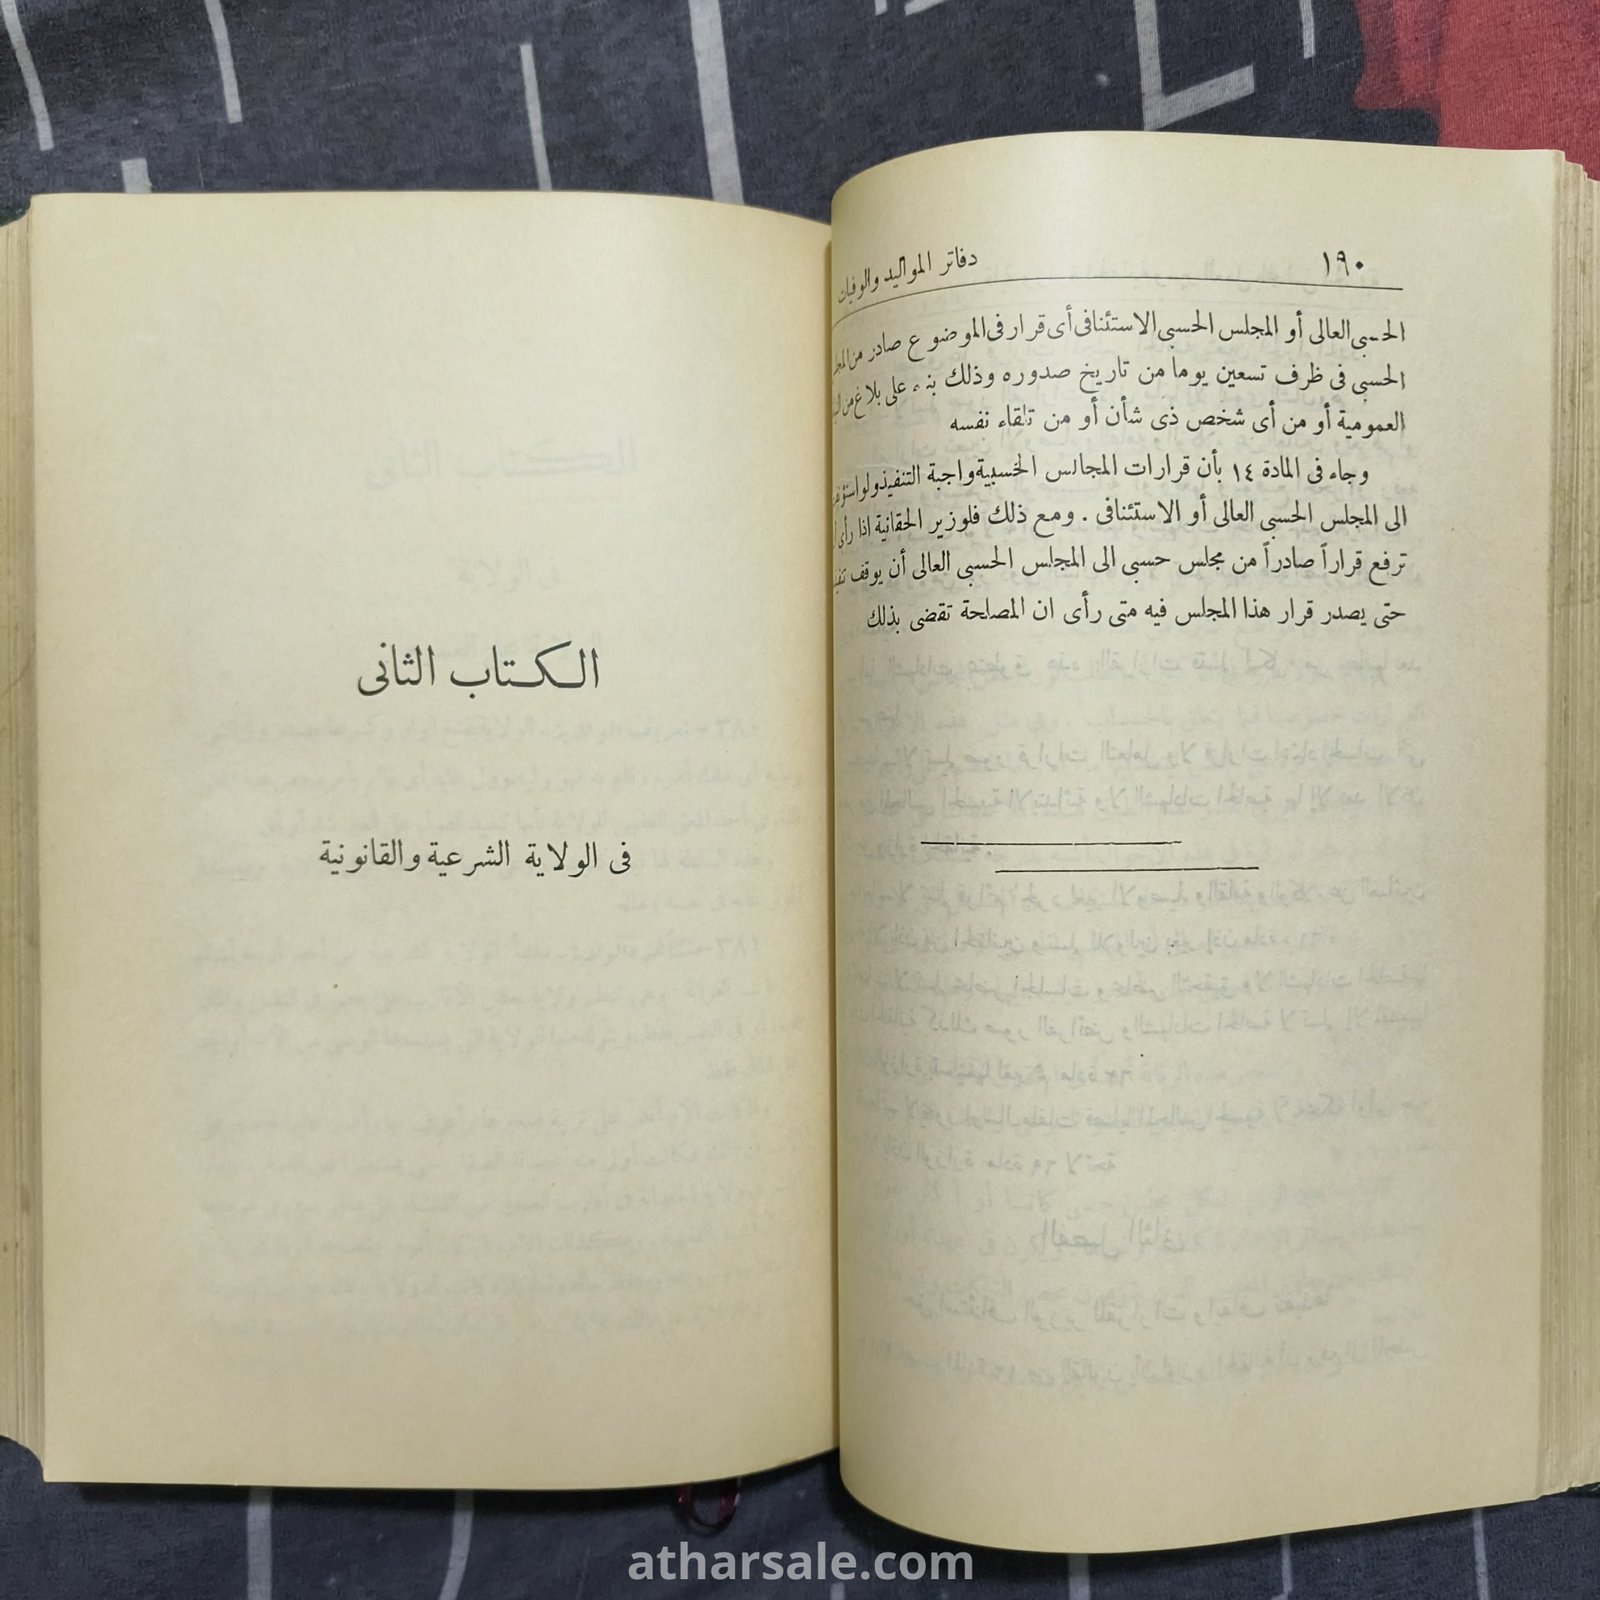 ١٩٠
دفاتر المواليد والوفيات
الحسبى العالى أو المجلس الحسبى الاستئنافى أى قرار فى الموضوع صادر من
الحسبى فى ظرف تسعين يوما من تاريخ صدوره وذلك بناء على بلاغ من
العمومية أو من أى شخص ذى شأن أو من تلقاء نفسه
وجاء فى المادة ١٤ بأن قرارات المجالس الحسبية واجبة التنفيذ ولو
الى المجلس الحسبى العالى أو الاستئنافى . ومع ذلك فلوزير الحقانية اذا رأى
ترفع قراراً صادراً من مجلس حسبى الى المجلس الحسبى العالى أن يوقف
حتى يصدر قرار هذا المجلس فيه متى رأى ان المصلحة تقضى بذلك
الكتاب الثانى
فى الولاية الشرعية والقانونية
atharsale.com